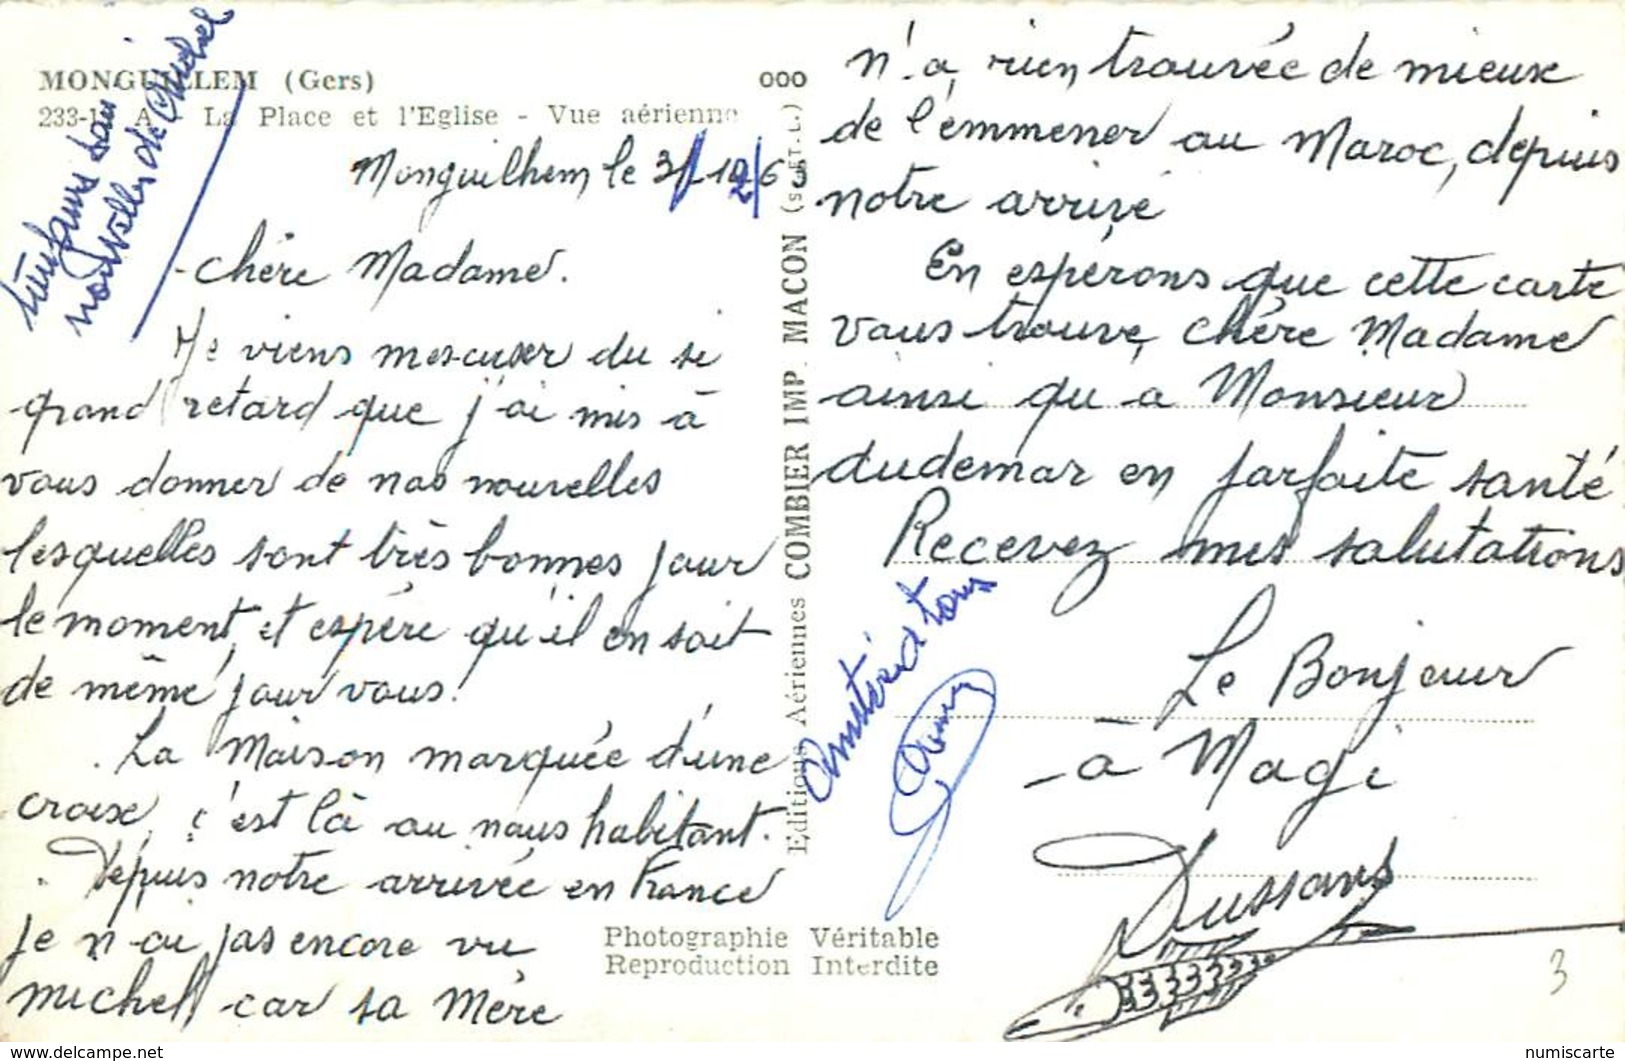 MONGUILLEM (Gers)
233-1 A - La Place et l'Eglise - Vue aérienne
nouvelles de Michel
Monguilhem le 3/12/63
-chère Madame.
Je viens mescuser du si
grand retard que j'ai mis à
vous donner de nos nouvelles
lesquelles sont très bonnes pour
le moment, et espère qu'il en soit
de même pour vous.
La Maison marquée d'une
croix, c'est là ou nous habitont.
Depuis notre arrivée en France
Je n-ai pas encore vu
michel, car sa Mère
ooo
Editions Aériennes COMBIER IMP. MACON (S.-ET-L.)
n'a rien trouvée de mieux
de l'emmener au Maroc, depuis
notre arrivé
En espérons que cette carte
vous trouve, chère Madame
ainsi qu-a Monsieur
dudemar en parfaite santé
Recevez mes salutations
Amitié à tous
Le Bonjour
-à Magi
Dussans
Photographie Véritable
Reproduction Interdite
3
© numiscarte.delcampe.net
numiscarte